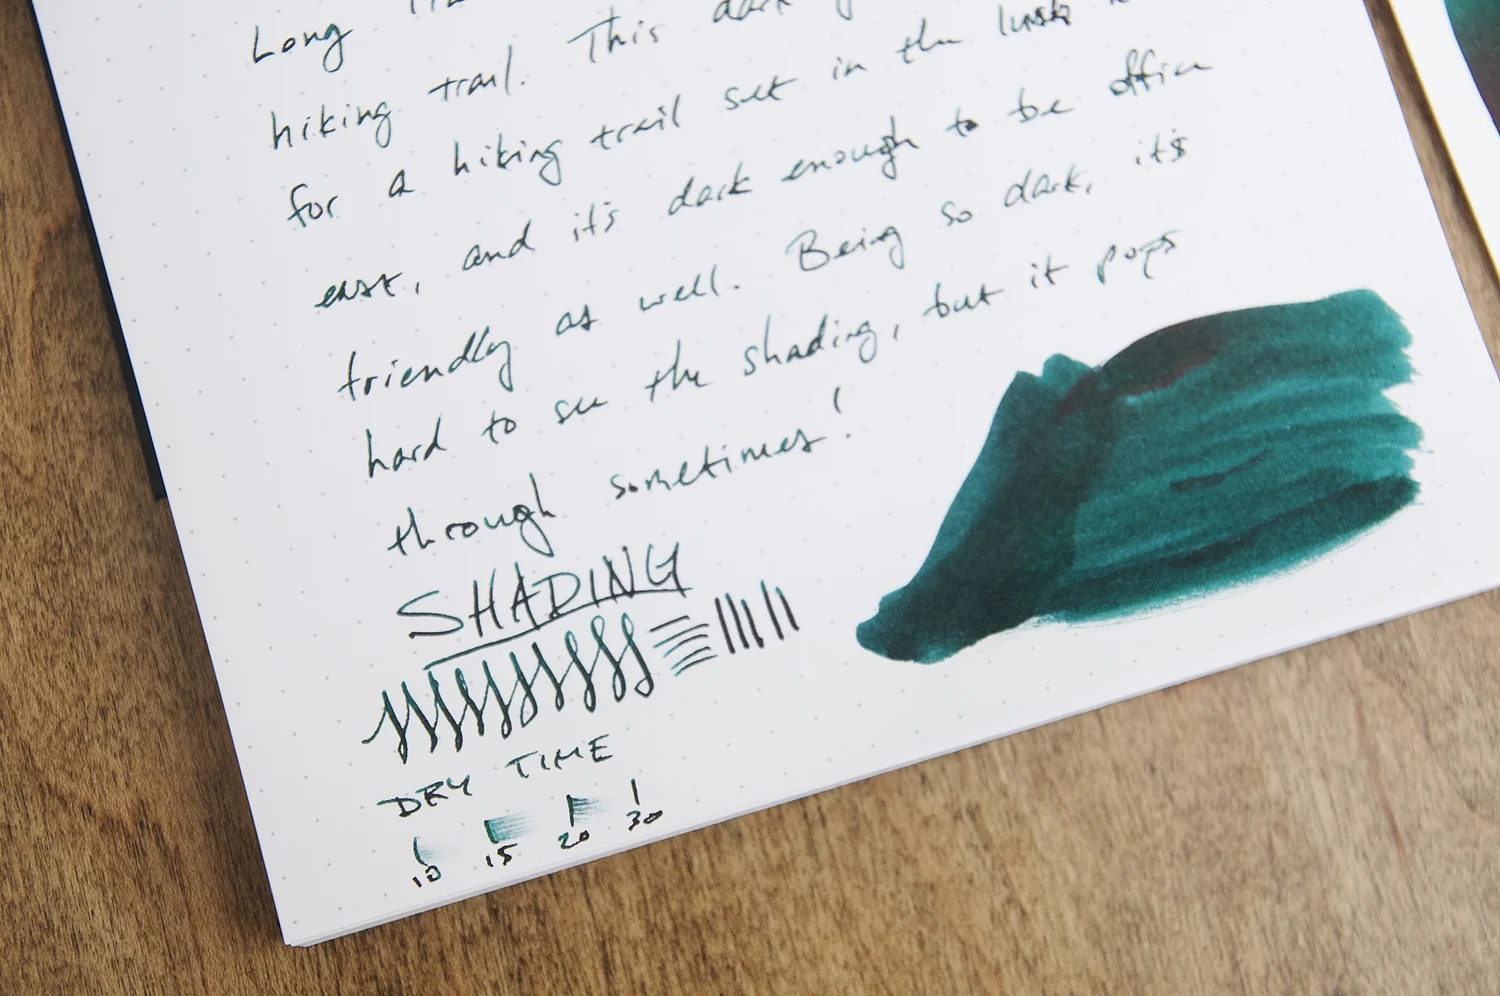 Long
hiking trail. This dark
for a hiking trail set in the lush
east, and it's dark enough to be office
friendly as well. Being so dark, it's
hard to see the shading, but it pops
through sometimes!
SHADING
DRY TIME
10 15 20 30